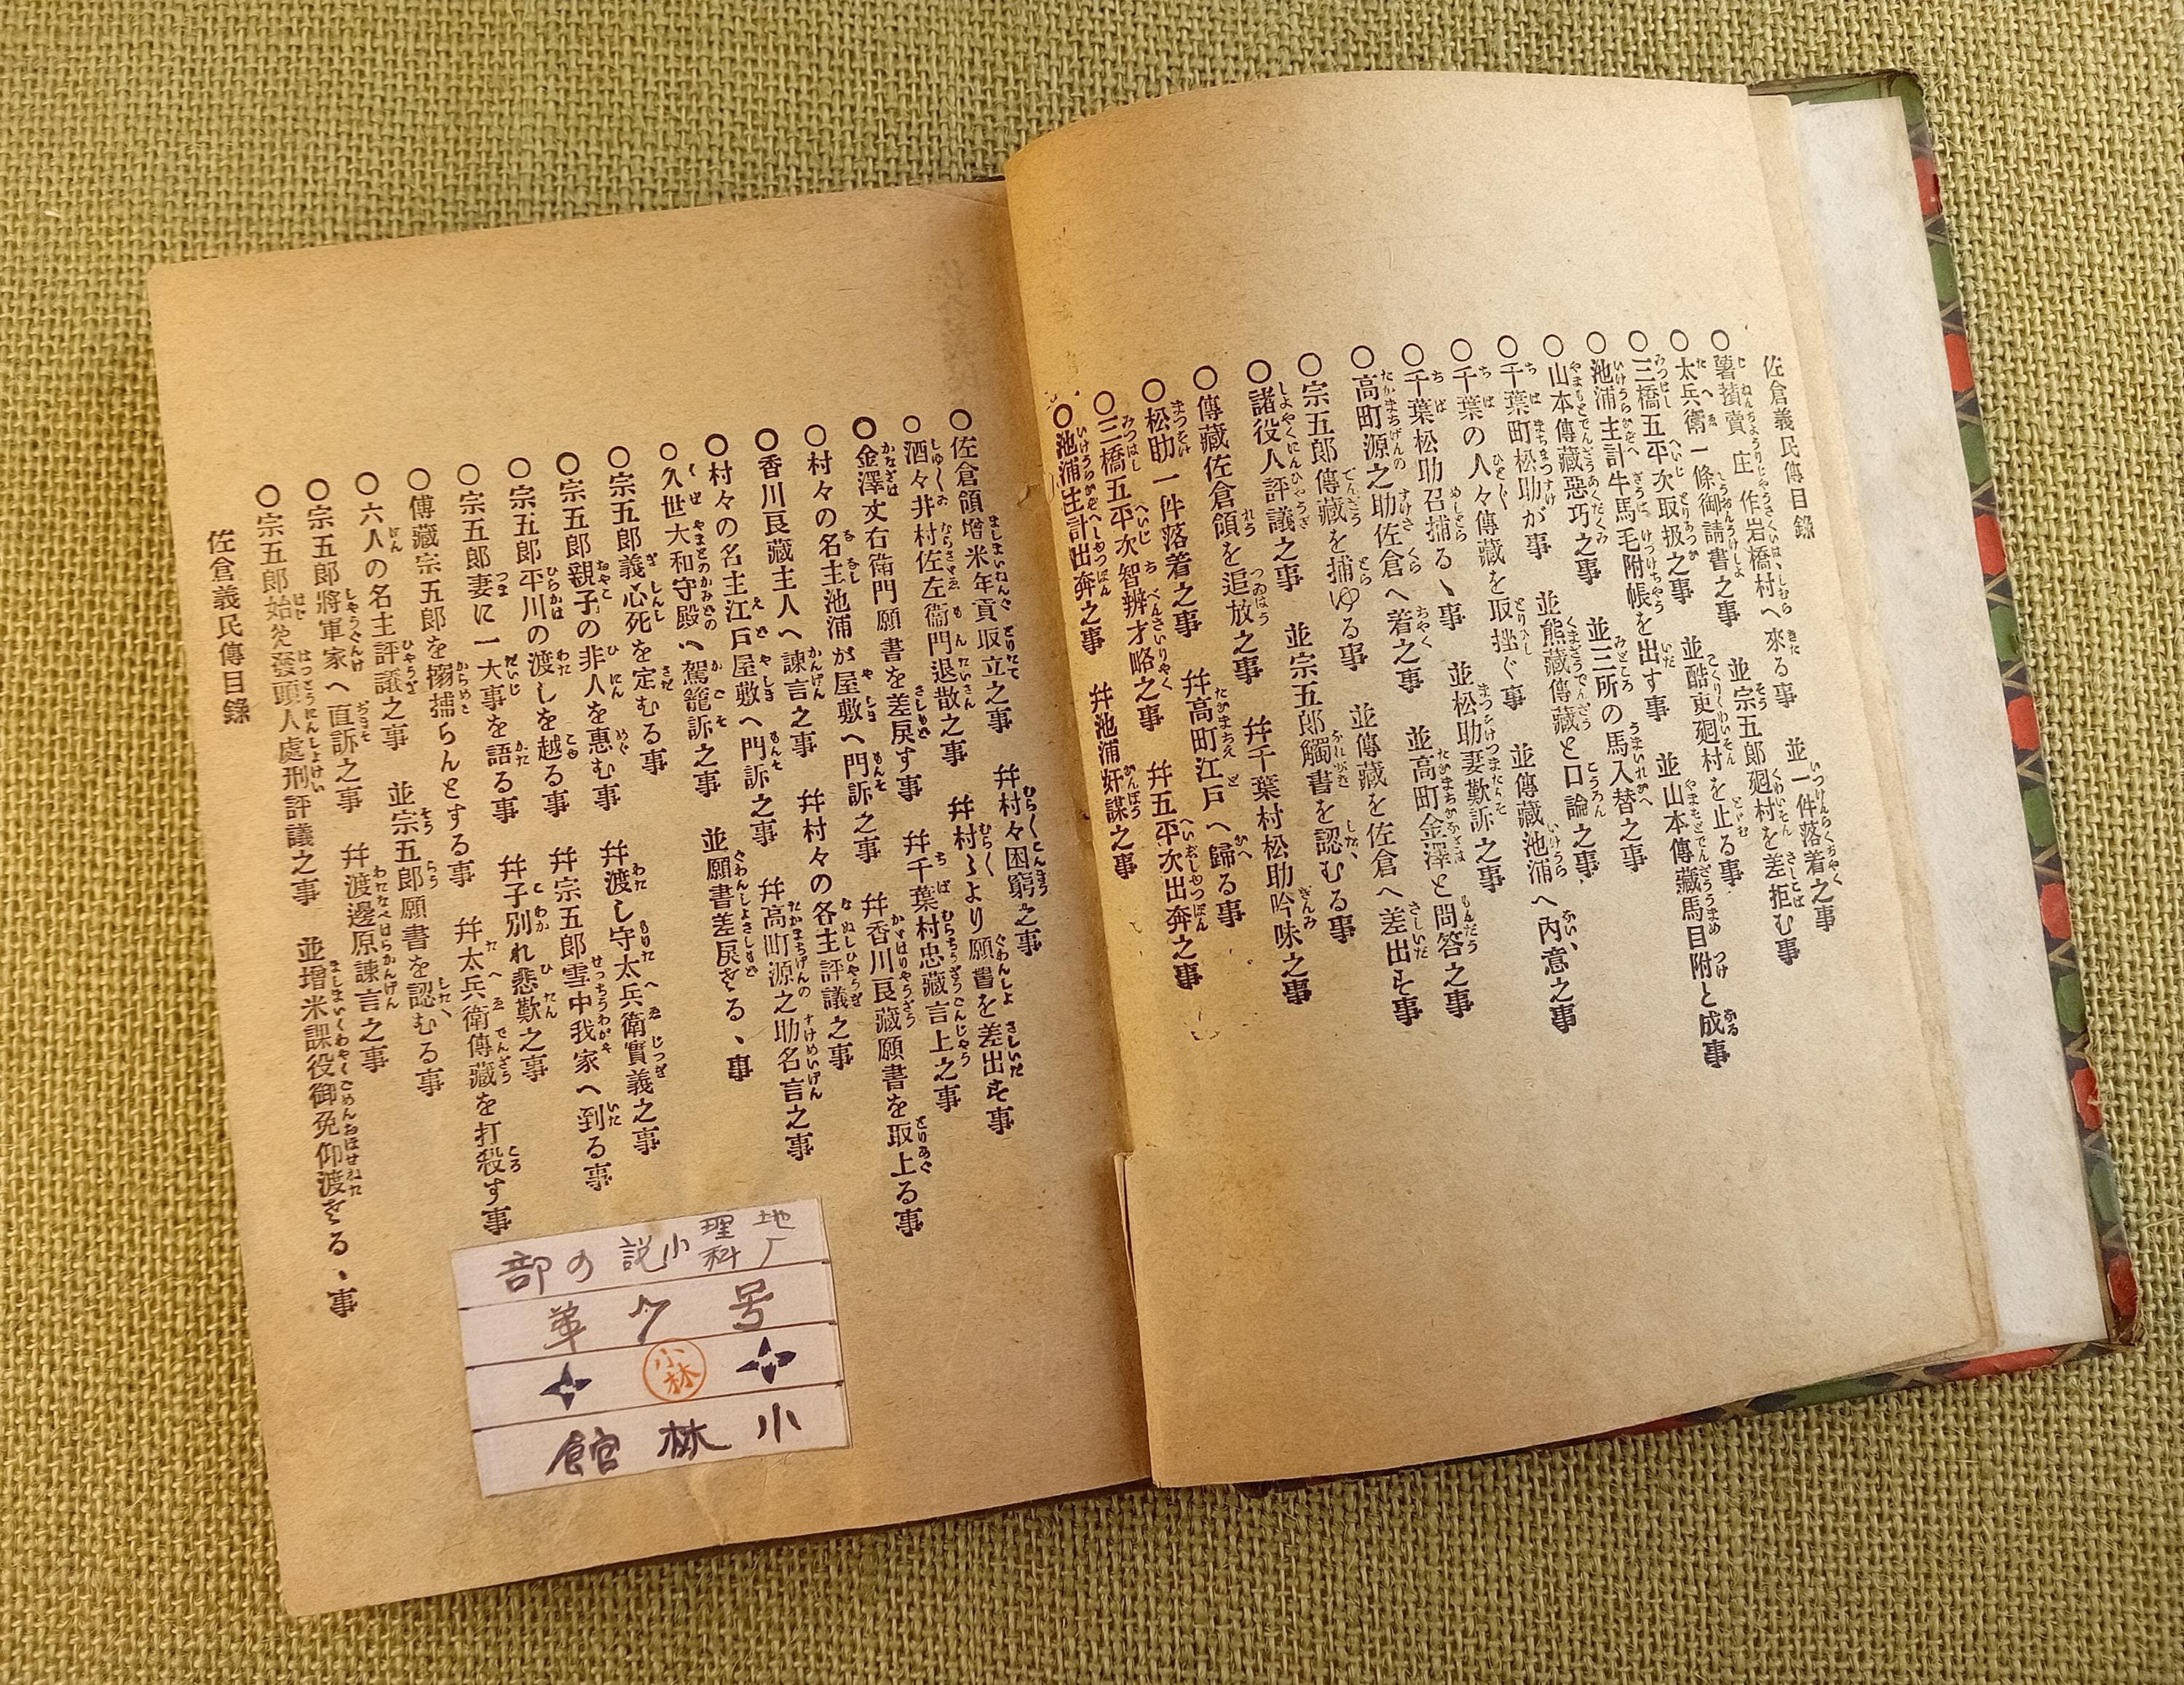 佐倉義民傳目錄
○薯蕷賣庄作岩橋村へ來る事 並一件落着之事
○太兵衛一條御請書之事 並宗五郎廻村を差拒む事
○三橋五平次取扱之事 並酷吏廻村を止る事
○池浦主計牛馬毛附帳を出す事 並山本傳藏馬目附と成事
○山本傳藏惡巧之事 並三所の馬入替之事
○千葉町松助が事 並熊藏傳藏と口論之事
○千葉の人々傳藏を取挫ぐ事 並傳藏池浦へ內意之事
○千葉松助召捕るゝ事 並松助妻歎訴之事
○高町源之助佐倉へ着之事 並高町金澤と問答之事
○宗五郎傳藏を捕ゆる事 並傳藏を佐倉へ差出す事
○諸役人評議之事 並宗五郎觸書を認むる事
○傳藏佐倉領を追放之事 幷千葉村松助吟味之事
○松助一件落着之事 幷高町江戸へ歸る事
○三橋五平次智辨才略之事 幷五平次出奔之事
○池浦主計出奔之事 幷池浦奸謀之事
○佐倉領增米年貢取立之事 幷村々困窮之事
○酒々井村佐左衞門退散之事 幷村々より願書を差出す事
○金澤丈右衞門願書を差戾す事 幷千葉村忠藏言上之事
○村々の名主池浦が屋敷へ門訴之事 幷香川良藏願書を取上る事
○香川良藏主人へ諫言之事 幷村々の名主評議之事
○村々の名主江戸屋敷へ門訴之事 幷高町源之助名言之事
○久世大和守殿へ駕籠訴之事 並願書差戾さるゝ事
○宗五郎義心死を定むる事 幷渡し守太兵衛實義之事
○宗五郎親子の非人を惠む事 幷宗五郎雪中我家へ到る事
○宗五郎平川の渡しを越る事 幷子別れ悲歎之事
○宗五郎妻に一大事を語る事 幷太兵衛傳藏を打殺す事
○傳藏宗五郎を搦捕らんとする事 並宗五郎願書を認むる事
○六人の名主評議之事 幷渡邊原諫言之事
○宗五郎將軍家へ直訴之事 並增米課役御免仰渡さるゝ事
○宗五郎始め發頭人處刑評議之事
佐倉義民傳目錄
地理科小説の部
第7号
小林
小林館